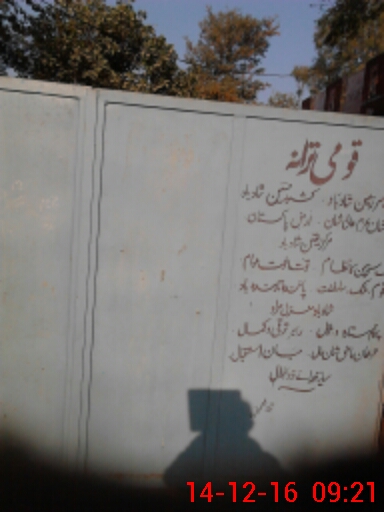 قومی ترانہ
سرزمین شاد باد - کشور حسین شاد باد
نشان عزم عالی شان - ارض پاکستان
مرکز یقین شاد باد
سرزمین کا نظام - قوت اخوت عوام
قوم ملک سلطنت - پائندہ تابندہ باد
شاد باد منزل مراد
پرچم ستارہ و ہلال - رہبر ترقی و کمال
ترجمان ماضی شان حال - جان استقبال
سایہ خدائے ذوالجلال
14-12-16 09:21